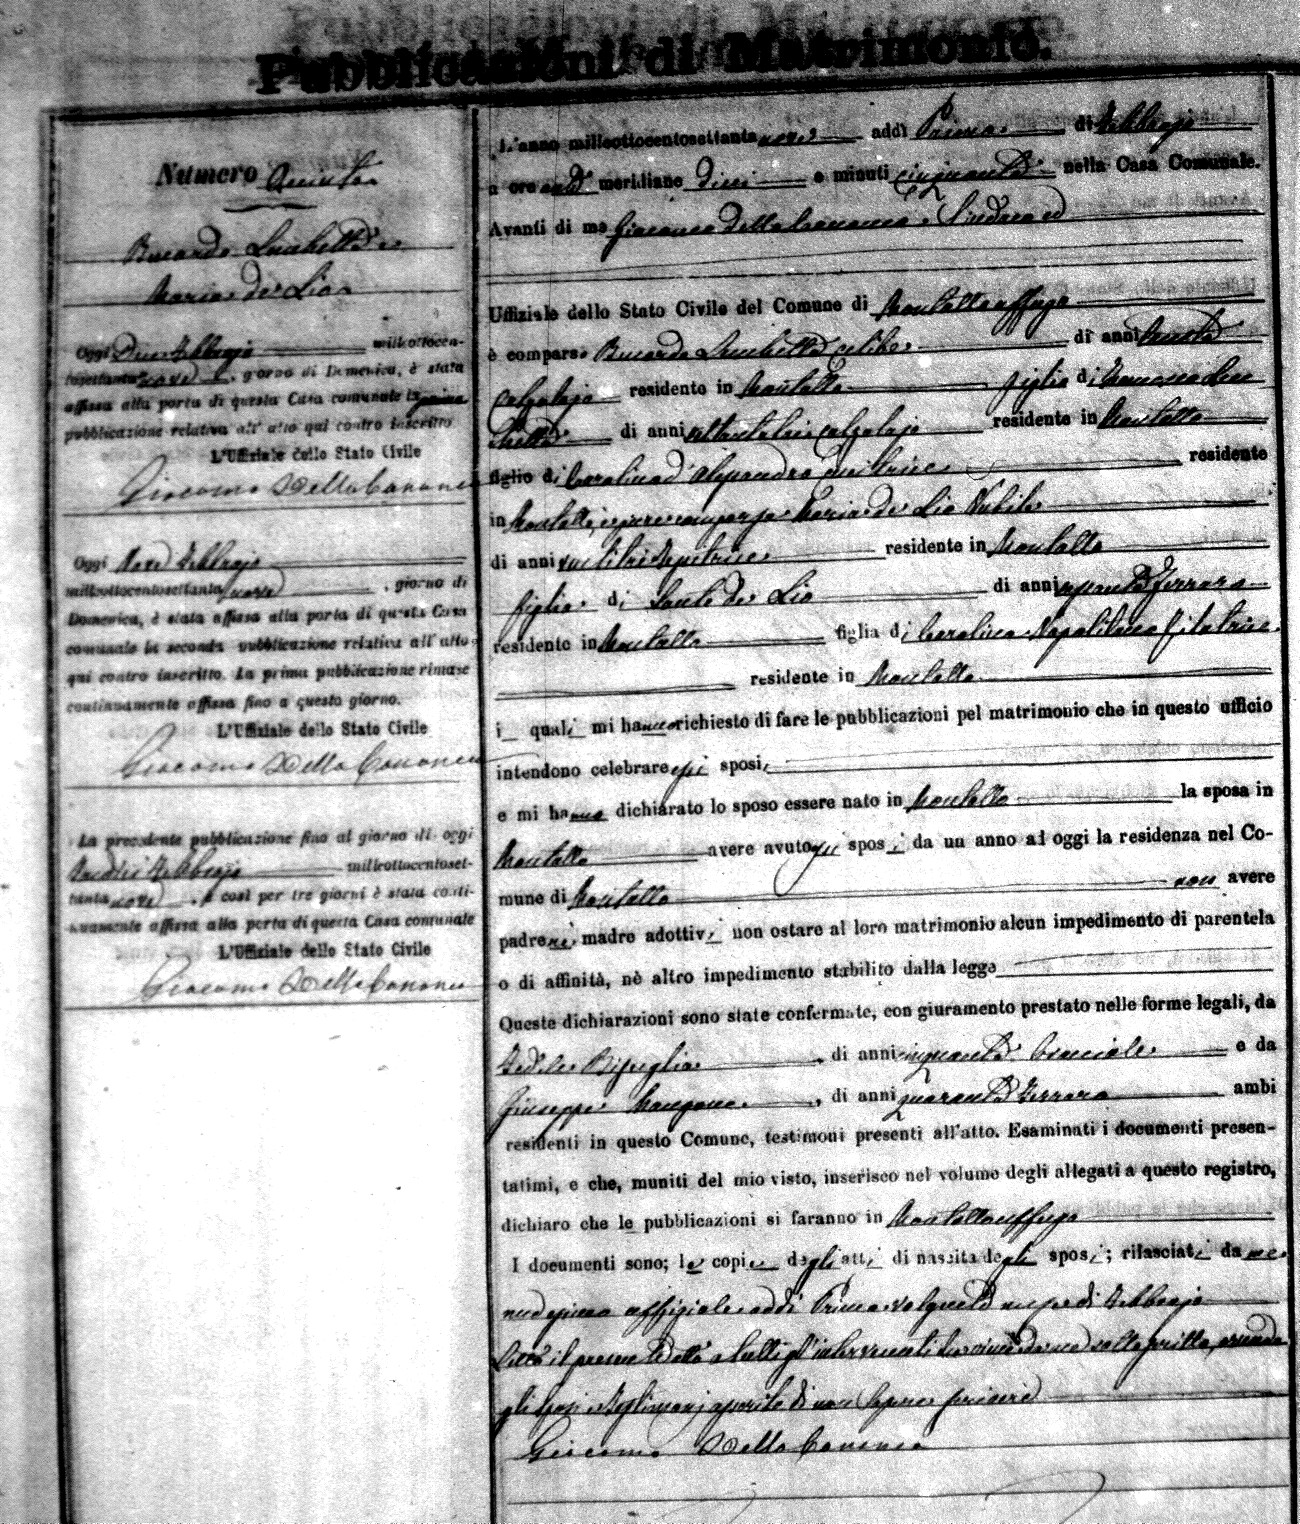 Pubblicazioni di Matrimonio.
Numero Quinto
Bucardo Luchetta e
Maria de Lio
Oggi Due Febbrajo milleottocen-
tosettanta nove, giorno di Domenica, è stata
affissa alla porta di questa Casa comunale la prima
pubblicazione relativa all' atto qui contro inscritto
L'Uffiziale dello Stato Civile
Giacomo Della Cananea
Oggi Nove Febbrajo
milleottocentosettanta nove, giorno di
Domenica, è stata affissa alla porta di questa Casa
comunale la seconda pubblicazione relativa all' atto
qui contro inscritto. La prima pubblicazione rimase
continuamente affissa fino a questo giorno.
L'Uffiziale dello Stato Civile
Giacomo Della Cananea
La precedente pubblicazione fino al giorno di oggi
Febbrajo milleottocentoset-
tanta nove, e così per tre giorni è stata conti-
nuamente affissa alla porta di questa Casa comunale
L'Uffiziale dello Stato Civile
Giacomo Della Cananea
L'anno milleottocentosettanta nove addì Primo di Febbrajo
a ore anti meridiane dieci e minuti cinquanta nella Casa Comunale.
Avanti di me Giacomo Della Cananea Sindaco ed
Uffiziale dello Stato Civile del Comune di Montaltouffugo
è comparso Bucardo Luchetta celibe di anni trenta
Calzolajo residente in Montalto figlio di Francesco Luc
chetta di anni calzolajo residente in Montalto
figlio di Carolina d'Alessandro Cucitrice residente
in Montalto, è pure comparsa Maria de Lio Nubile
di anni ventitre residente in Montalto
figlia di Sante de Lio di anni Ferraro
residente in Montalto figlia di Carolina Napolitano filatrice
residente in Montalto
i quali mi hanno richiesto di fare le pubblicazioni pel matrimonio che in questo ufficio
intendono celebrare essi sposi,
e mi hanno dichiarato lo sposo essere nato in Montalto la sposa in
Montalto avere avuto gli sposi da un anno ad oggi la residenza nel Co-
mune di Montalto non avere
padre nè madre adottivi non ostare al loro matrimonio alcun impedimento di parentela
o di affinità, nè altro impedimento stabilito dalla legge
Queste dichiarazioni sono state confermate, con giuramento prestato nelle forme legali, da
Fedele Bisuglia, di anni cinquanta bracciale e da
Giuseppe Mangone, di anni quaranta Ferraro ambi
residenti in questo Comune, testimoni presenti all'atto. Esaminati i documenti presen-
tatimi, e che, muniti del mio visto, inserisco nel volume degli allegati a questo registro,
dichiaro che le pubblicazioni si faranno in Montaltouffugo
I documenti sono; le copie degli atti di nascita degli sposi; rilasciati da me
uffiziale addì Primo mese di Febbrajo
Letto il presente atto a tutti gl'intervenuti sottoscritto, avendo
gli sposi e testimonj asserito di non sapere scrivere
Giacomo Della Cananea